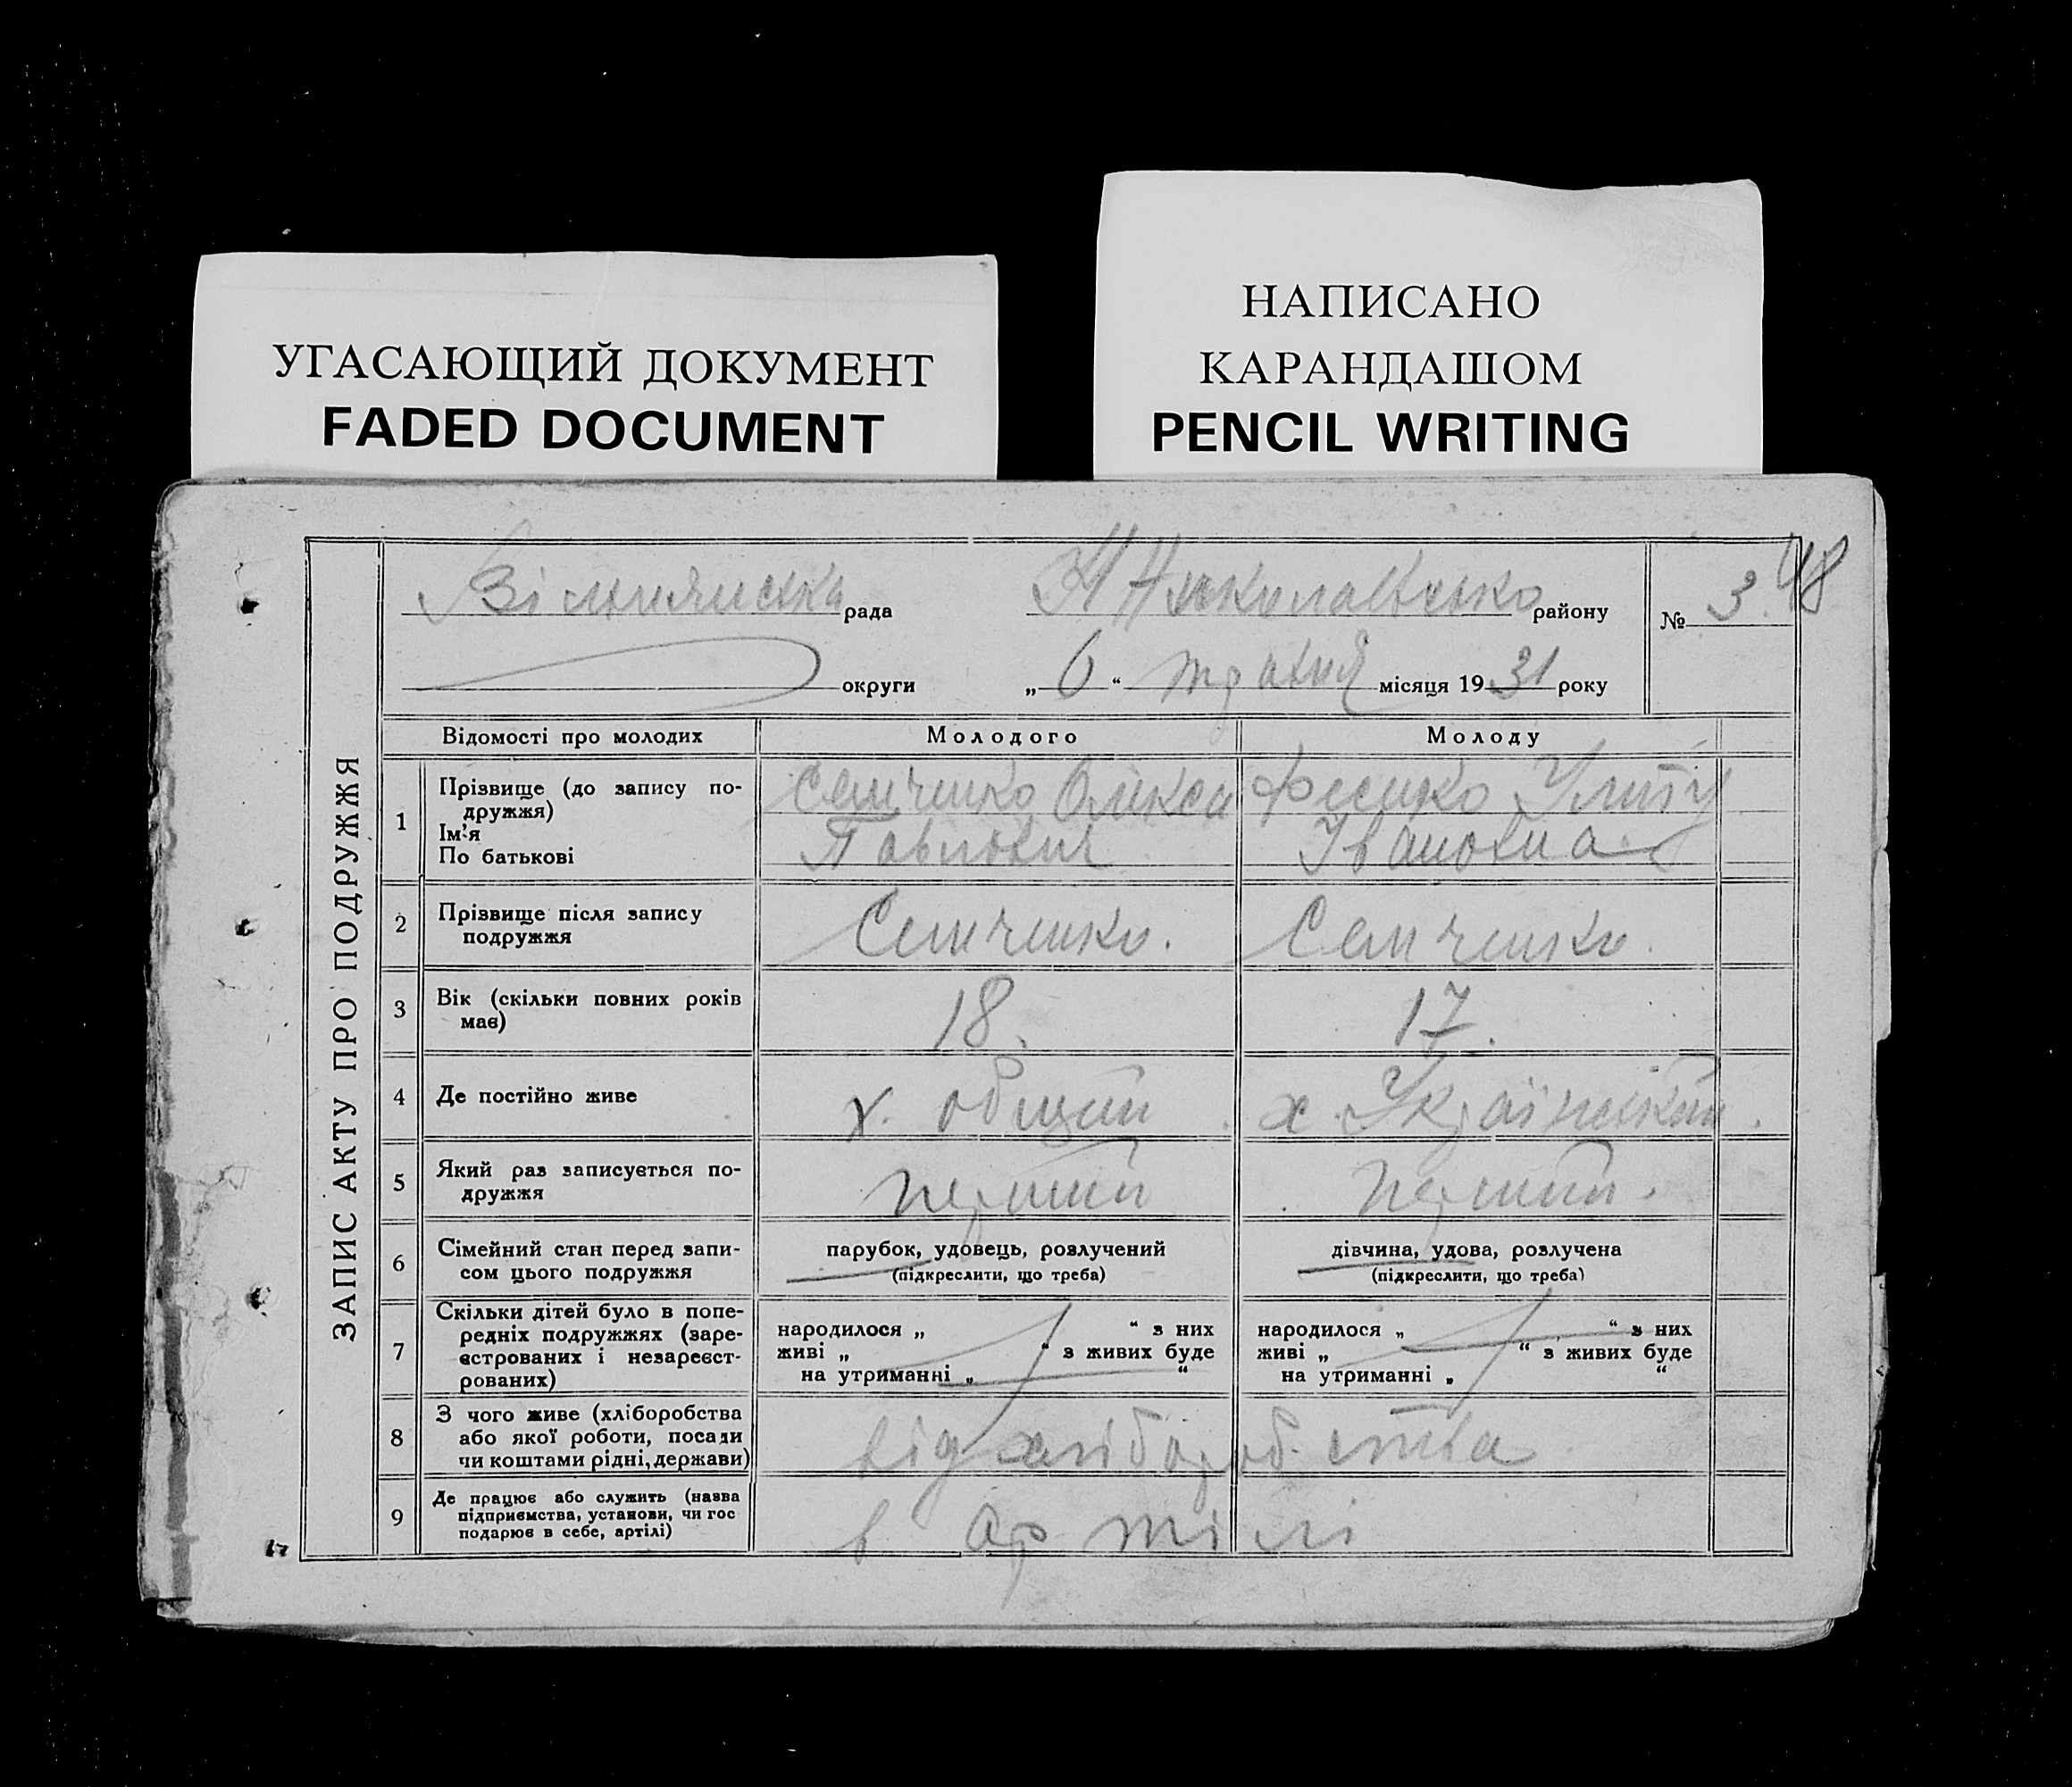 УГАСАЮЩИЙ ДОКУМЕНТ
FADED DOCUMENT
НАПИСАНО
КАРАНДАШОМ
PENCIL WRITING
ЗАПИС АКТУ ПРО ПОДРУЖЖЯ
рада району № 3 48
округи „ 6 “ травня місяця 19 31 року
Відомості про молодих Молодого Молоду
1 Прізвище (до запису по-
дружжя)
Ім’я
По батькові
Семченко Олекса
Павлович
Фесенко Улиту
Івановна
2 Прізвище після запису
подружжя
Семченко. Семченко.
3 Вік (скільки повних років
має)
18. 17.
4 Де постійно живе х. общий х. Український.
5 Який раз записується по-
дружжя
перший перший.
6 Сімейний стан перед запи-
сом цього подружжя
парубок, удовець, розлучений
(підкреслити, що треба)
дівчина, удова, розлучена
(підкреслити, що треба)
7 Скільки дітей було в попе-
редніх подружжях (заре-
єстрованих і незареєст-
рованих)
народилося „ “ з них
живі „ “ з живих буде
на утриманні „ “
народилося „ “ з них
живі „ “ з живих буде
на утриманні „ “
8 З чого живе (хліборобства
або якої роботи, посади
чи коштами рідні, держави)
від хліборобства
9 Де працює або служить (назва
підприємства, установи, чи гос
подарює в себе, артілі)
в артілі